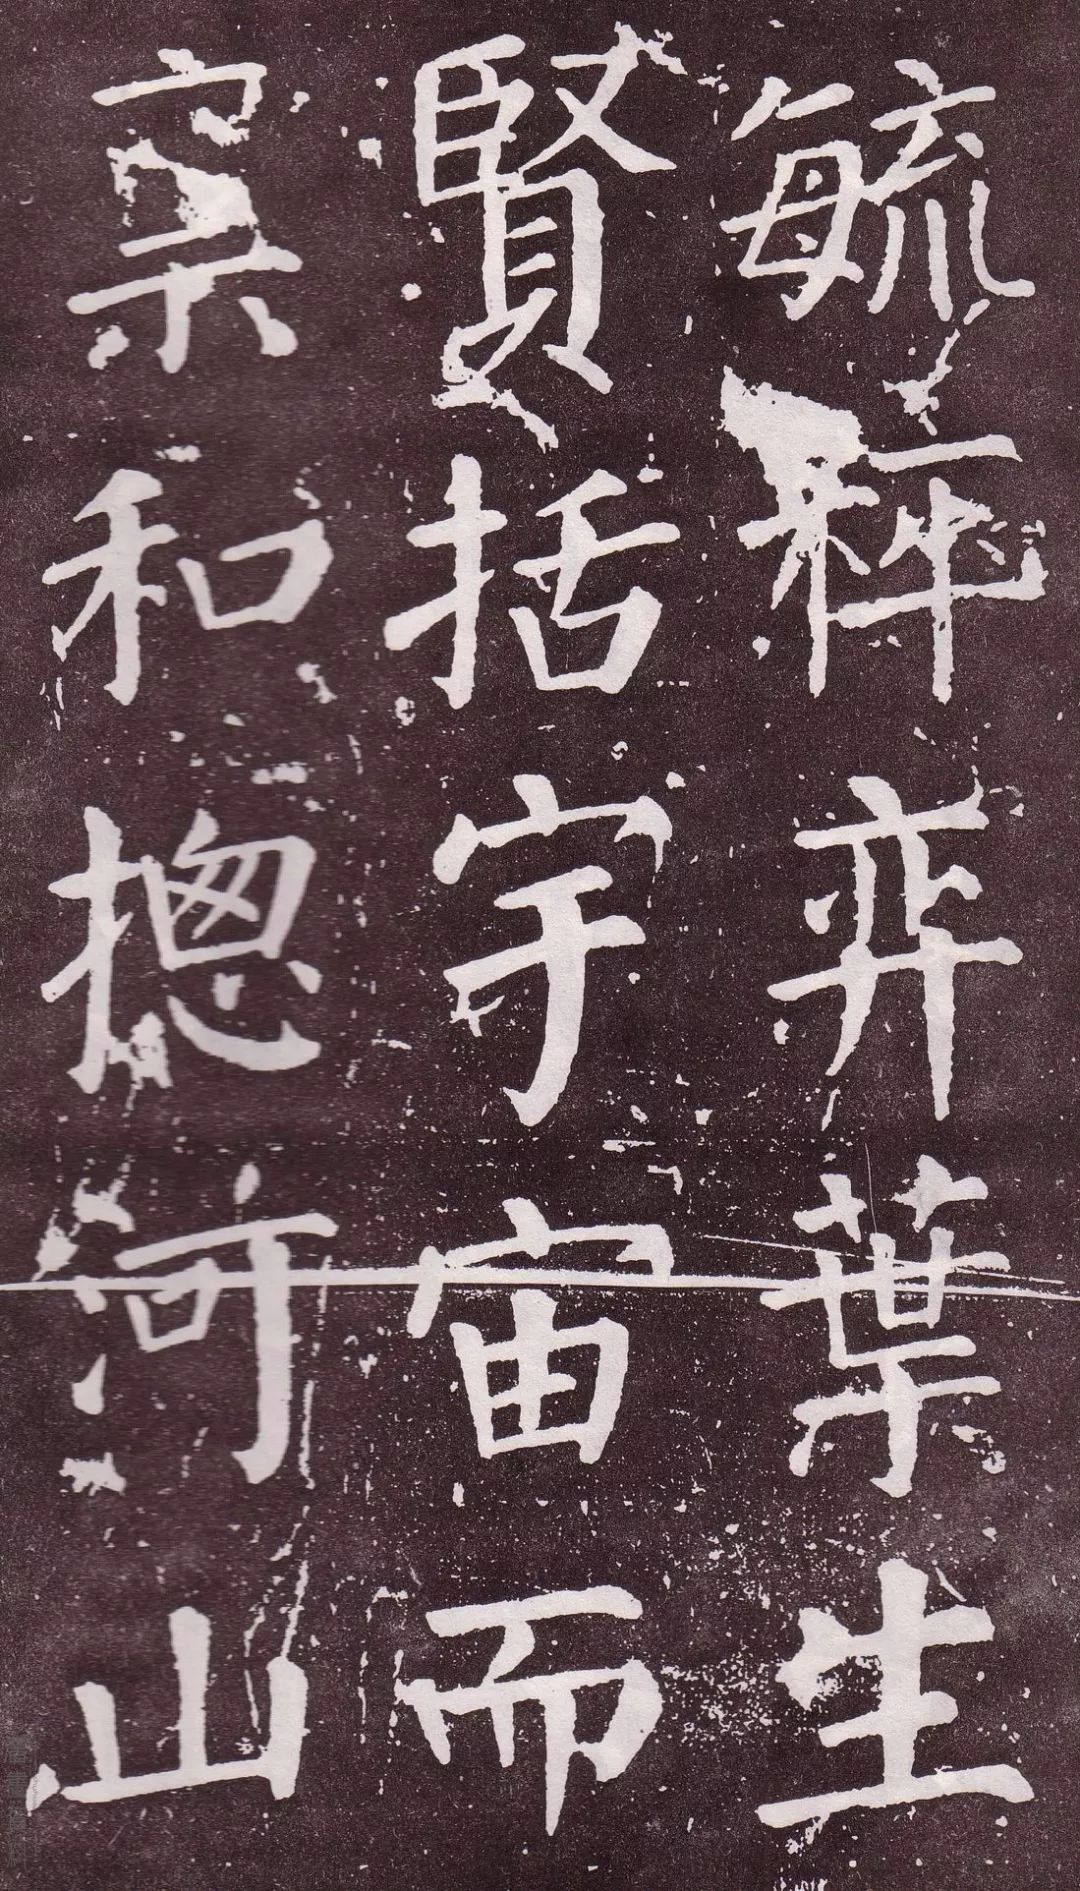 毓粹弈葉生
賢括宇宙而
禀和摠河山